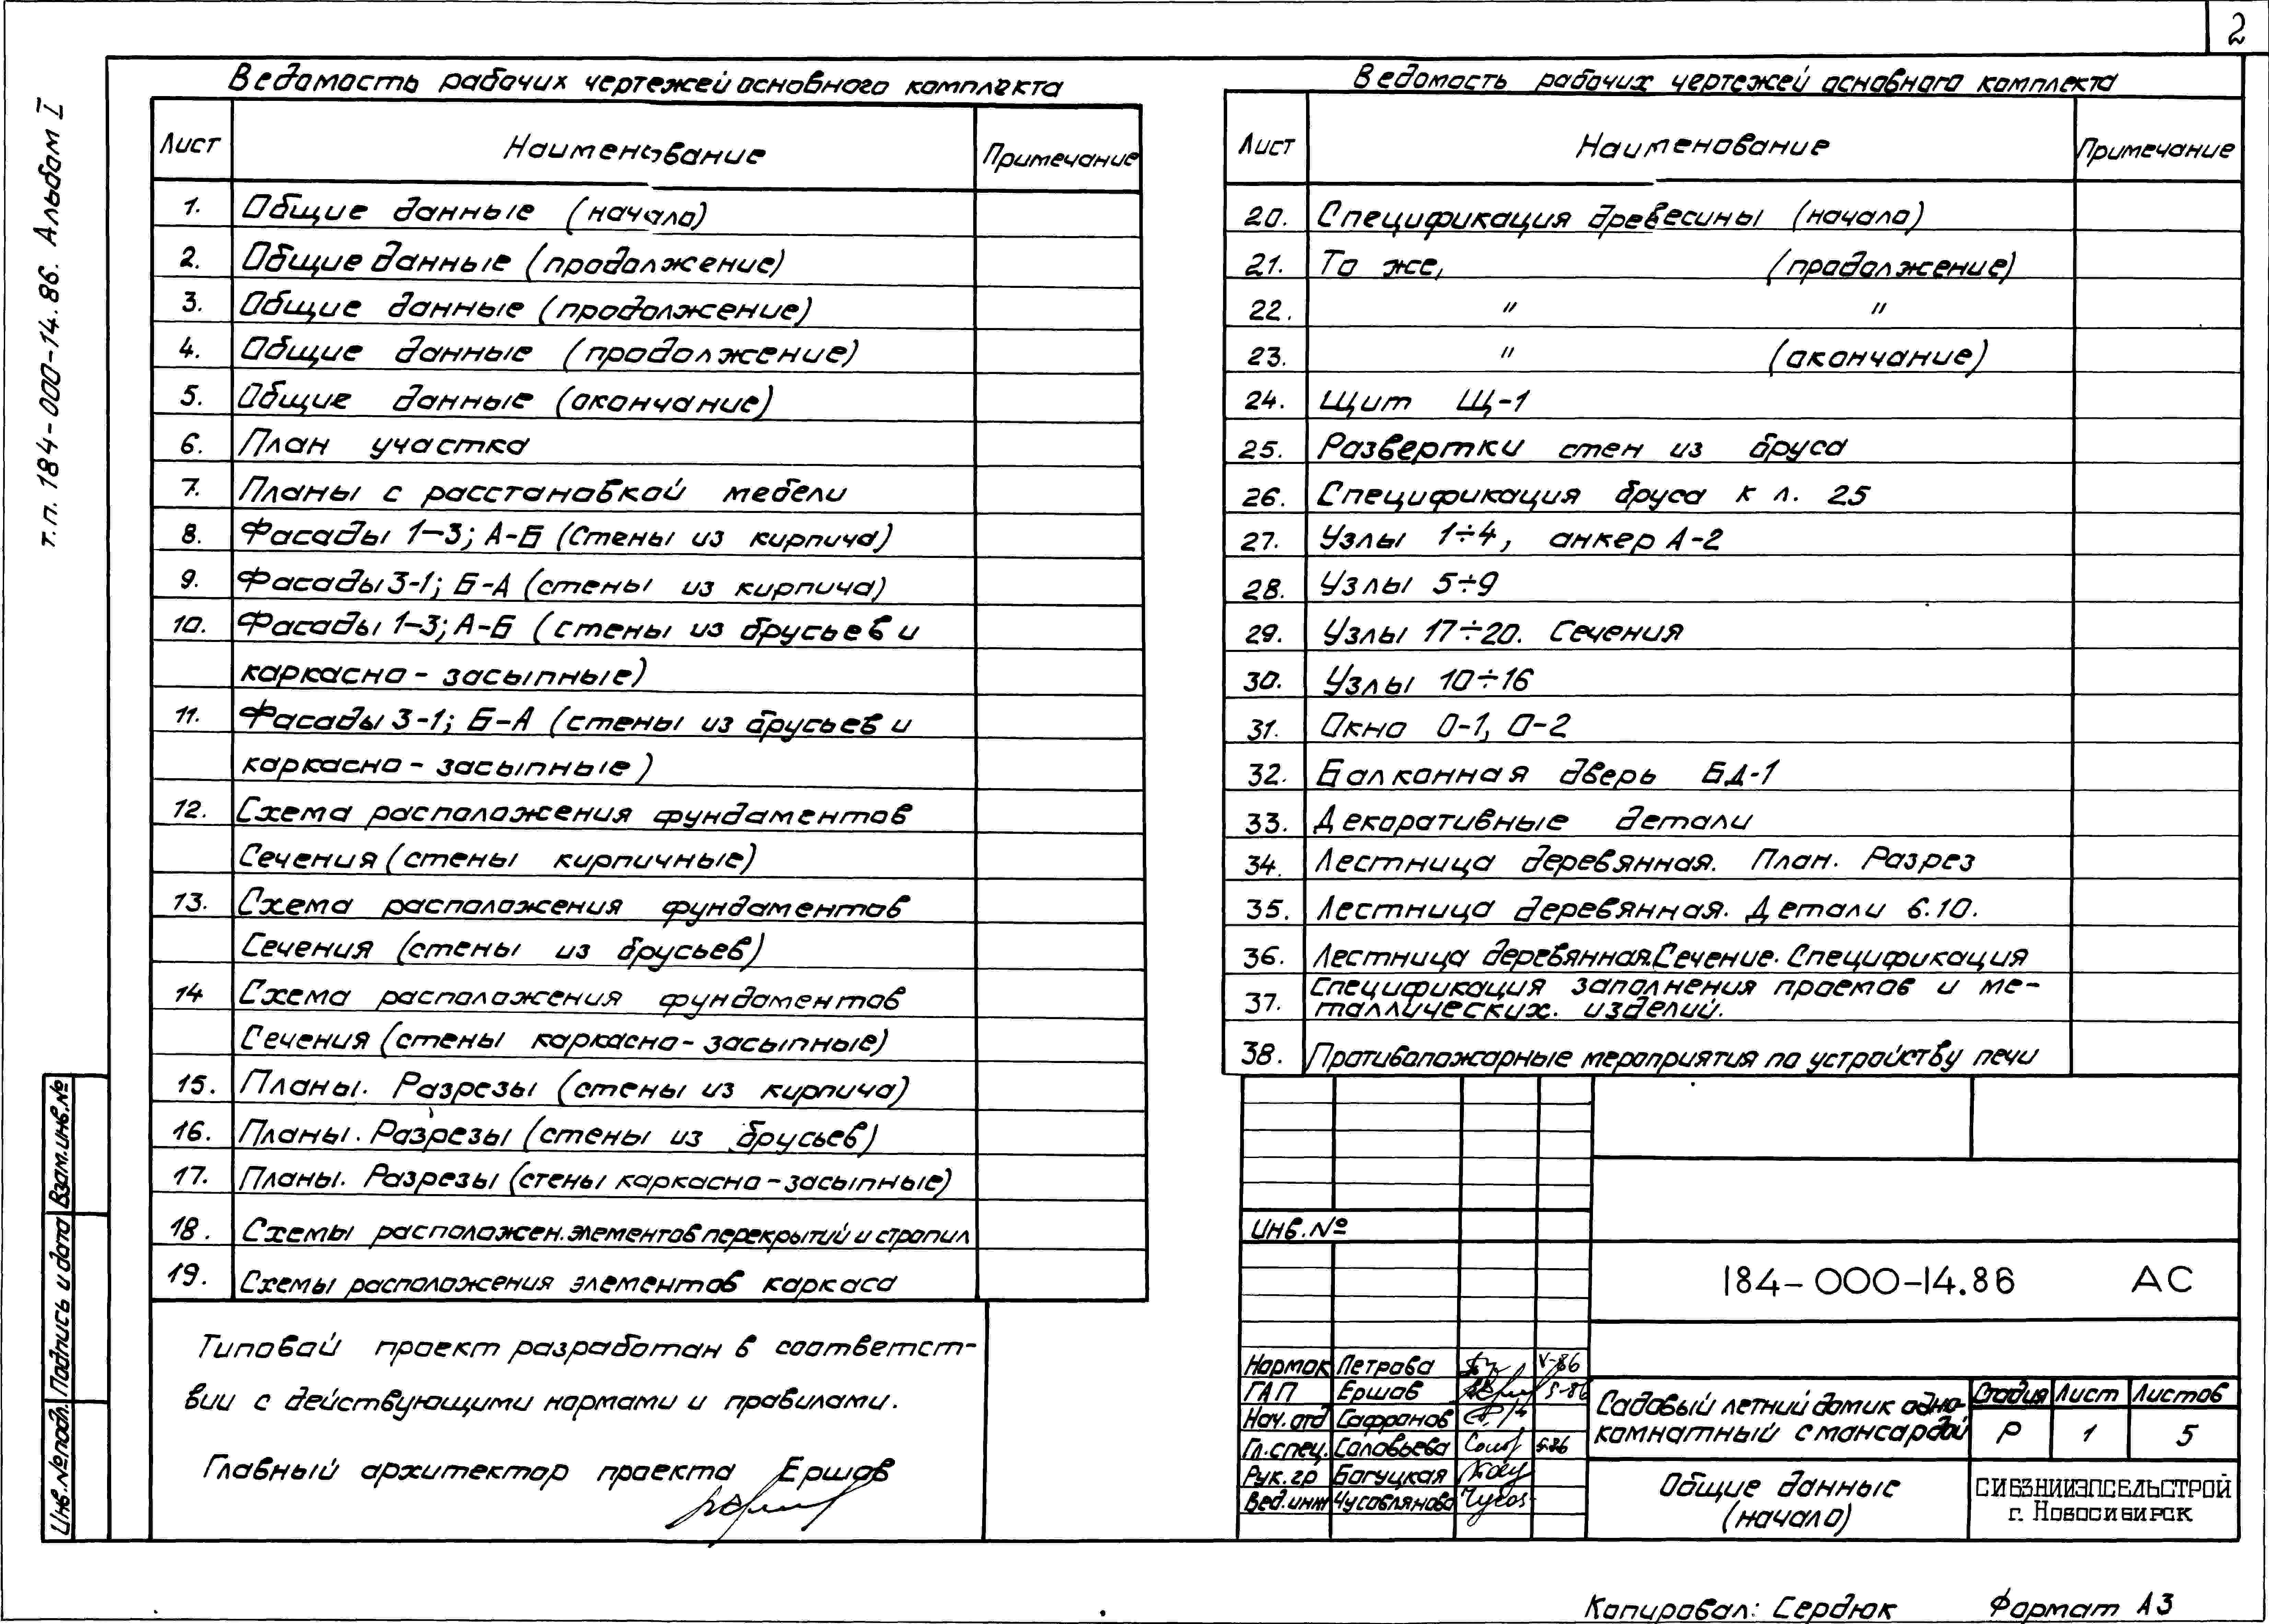 2
т.п. 184-000-14.86. Альбом I
Ведомость рабочих чертежей основного комплекта
Лист Наименование Примечание
1. Общие данные (начало)
2. Общие данные (продолжение)
3. Общие данные (продолжение)
4. Общие данные (продолжение)
5. Общие данные (окончание)
6. План участка
7. Планы с расстановкой мебели
8. Фасады 1-3; А-Б (Стены из кирпича)
9. Фасады 3-1; Б-А (стены из кирпича)
10. Фасады 1-3; А-Б (стены из брусьев и
каркасно-засыпные)
11. Фасады 3-1; Б-А (стены из брусьев и
каркасно-засыпные)
12. Схема расположения фундаментов
Сечения (стены кирпичные)
13. Схема расположения фундаментов
Сечения (стены из брусьев)
14 Схема расположения фундаментов
Сечения (стены каркасно-засыпные)
15. Планы. Разрезы (стены из кирпича)
16. Планы. Разрезы (стены из брусьев)
17. Планы. Разрезы (стены каркасно-засыпные)
18. Схемы расположен. элементов перекрытий и стропил
19. Схемы расположения элементов каркаса
Типовой проект разработан в соответст-
вии с действующими нормами и правилами.
Главный архитектор проекта Ершов
Ведомость рабочих чертежей основного комплекта
Лист Наименование Примечание
20. Спецификация древесины (начало)
21. То же, (продолжение)
22. " "
23. " (окончание)
24. Щит Щ-1
25. Развертки стен из бруса
26. Спецификация бруса к л. 25
27. Узлы 1÷4, анкер А-2
28. Узлы 5÷9
29. Узлы 17÷20. Сечения
30. Узлы 10÷16
31. Окно О-1, О-2
32. Балконная дверь БД-1
33. Декоративные детали
34. Лестница деревянная. План. Разрез
35. Лестница деревянная. Детали 6.10.
36. Лестница деревянная. Сечение. Спецификация
37. Спецификация заполнения проемов и ме-
таллических. изделий.
38. Противопожарные мероприятия по устройству печи
Инв.№
184-000-14.86 АС
Нормок Петрова V-86
ГАП Ершов 5-86
Нач. отд Сафронов
Гл. спец. Соловьева 5.86
Рук. гр Богуцкая
Вед. инж Чусовлянова
Садовый летний домик одно-
комнатный с мансардой
Стадия Лист Листов
Р 1 5
Общие данные
(начало)
СИБЗНИИЭПСЕЛЬСТРОЙ
г. Новосибирск
Инв.№подл. Подпись и дата Взам.инв.№
Копировал: Сердюк Формат А3